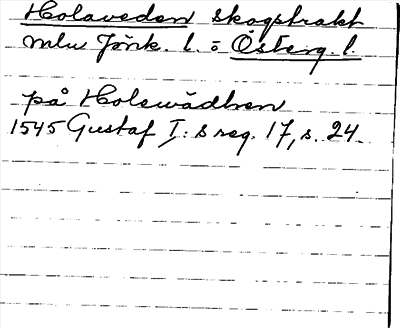 Holaveden skogstrakt
mlu Jönk. l. o Österg. l.
på Holewådhen
1545 Gustaf I:s reg. 17, s. 24.